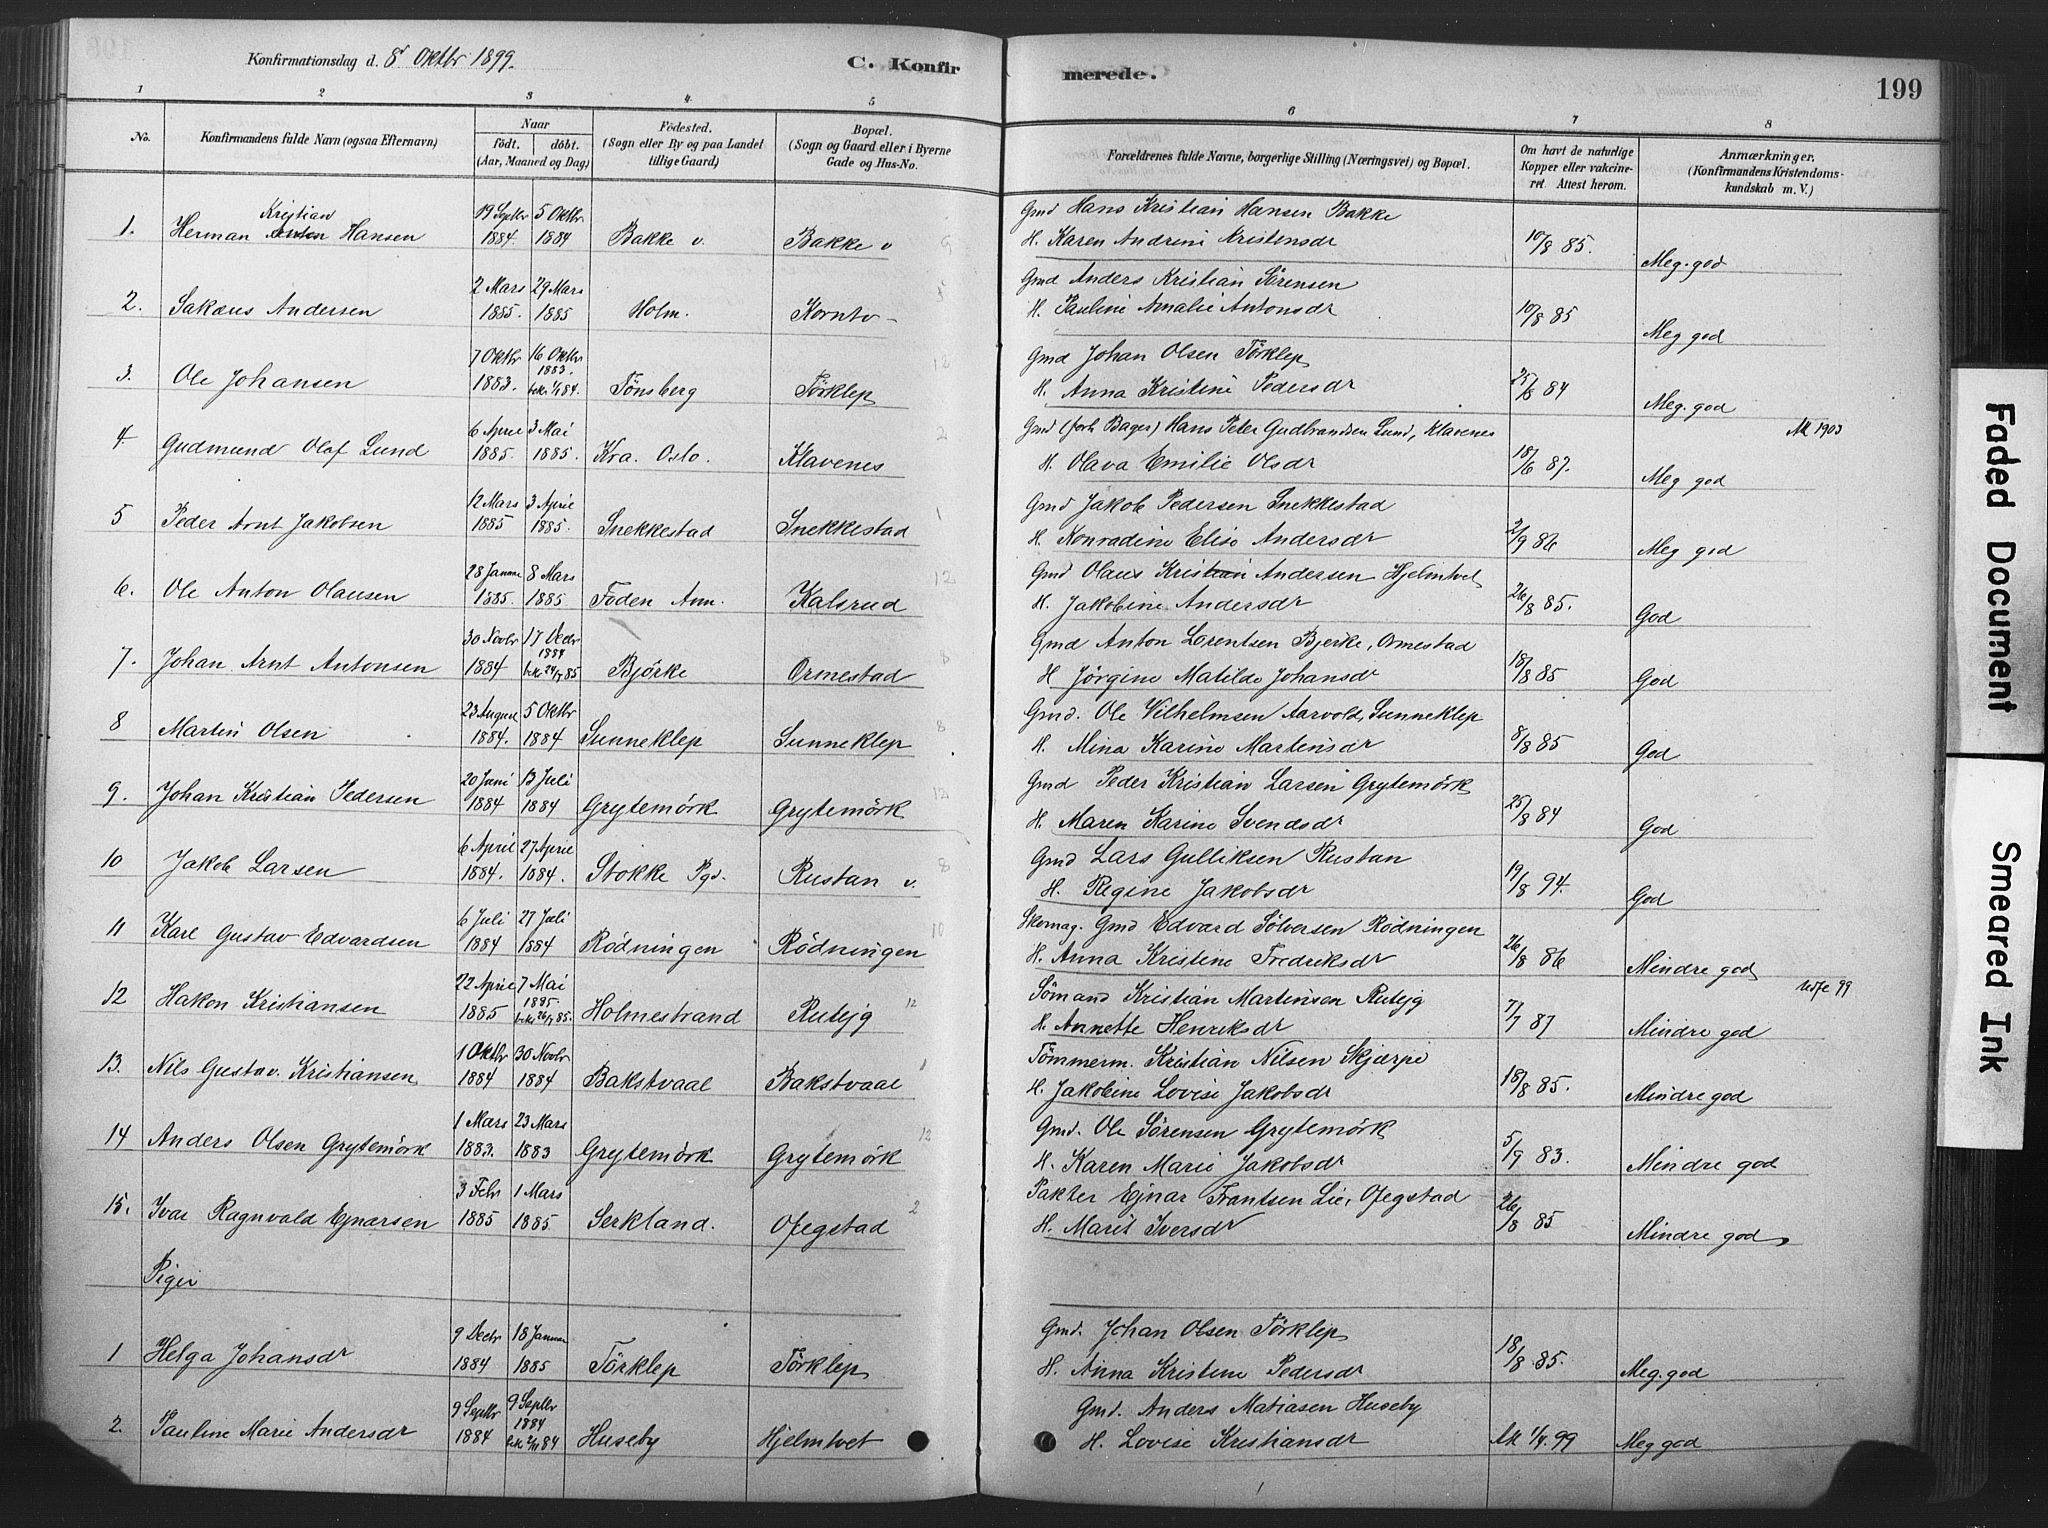 Konfirmationsdag d. 8de Oktbr 1899.
C. Konfirmerede.
199
1 2 3 4 5 6 7 8
No.
Konfirmandens fulde Navn (ogsaa Efternavn)
Naar
födt. döbt.
(Aar, Maaned og Dag)
Födested.
(Sogn eller By og paa Landet
tillige Gaard)
Bopæl.
(Sogn og Gaard eller i Byerne
Gade og Hus-No.
Forældrenes fulde Navne, borgerlige Stilling (Næringsvei) og Bopæl.
Om havt de naturlige
Kopper eller vakcine-
ret. Attest herom.
Anmærkninger.
(Konfirmandens Kristendoms-
kundskab m. V.)
1. Herman Kristian Hansen 19 Septbr 1884. 5 Oktbr 1884 Bakke v. Bakke v Gmd Hans Kristian Hansen Bakke
H. Karen Andrini Kristensdr 10/8 85. Meg. god
2. Sakæus Andersen 2 Mars 1885. 29 Mars 1885 Holm. Korntv- 5 Gmd Anders Kristian Sörensen
H. Pauline Amalie Antonsdr 10/8 85 Meg god
3. Ole Johansen 7 Oktbr 1883. 16 Oktbr 1883. bekr 1/1 84. Tönsberg Törklep 12 Gmd Johan Olsen Törklep
H. Anna Kristine Pedersdr 25/8 84 Meg. god
4. Gudmund Olaf Lund 6 April 1885. 3 Mai 1885. Kra. Oslo. Klavenes 2 Gmd (forh Bager) Hans Peter Gudbrandsen Lund, Klavenes
H. Olava Emilie Olsdr 18/6 87. Meg god Att 1903
5 Peder Arnt Jakobsen 12 Mars 1885 3 April 1885. Snekkestad Snekkestad 1 Gmd Jakob Pedersen Snekkestad
H. Konradine Elise Andersdr 2/9 86 Meg god
6. Ole Anton Olausen 28 Januar 1885. 8 Mars 1885 Foden Ann. Kalsrud 12 Gmd Olaus Kristian Andersen Hjelmtvet
H. Jakobine Andersdr 26/8 85. God
7. Johan Arnt Antonsen 30 Novbr 1884 17 Decbr 1884 bekr 24/5 85 Björke Ormestad 8 Gmd Anton Lorentsen Bjerke, Ormestad
H Jörgine Matilde Johansdr 18/8 85 God
8 Martin Olsen 23 August 1884. 5 Oktbr 1884 Sunneklep Sunneklep 8 Gmd. Ole Vilhelmsen Aarvold, Sunneklep
H. Mina Karine Martinsdr 8/8 85 God
9. Johan Kristian Pedersen 20 Juni 1884 13 Juli 1884 Grytemörk Grytemörk 12 Gmd Peder Kristian Larsen Grytemörk
H. Maren Karine Svendsdr 25/8 84 God
10 Jakob Larsen 6 April 1884. 27 April 1884. Stokke Pgd. Rustan v. 8 Gmd Lars Gulliksen Rustan
H. Regine Jakobsdr 19/8 94. God
11 Karl Gustav Edvardsen 6 Juli 1884 27 Juli 1884 Rödningen Rödningen 10 Skomag. Gmd Edvard Sölversen Rödningen
H. Anna Kristine Fredriksdr 26/8 86 Mindre god
12 Hakon Kristiansen 22 April 1885 7 Mai 1885. bekr 26/7 85. Holmestrand Rutejg 12 Sömand Kristian Martinsen Rutejg
H. Annette Henriksdr 7/7 87 Mindre god
13. Nils Gustav. Kristiansen 1 Oktbr 1884 30 Novbr 1884 Bakstvaal Bakstvaal 1 Tömmerm. Kristian Nilsen Skjærpe
H. Jakobine Lovise Jakobsdr 18/8 85. Mindre god
14 Anders Olsen Grytemörk 1 Mars 1883. 23 Mars 1883 Grytemörk Grytemörk 12 Gmd. Ole Sörensen Grytemörk
H. Karen Marie Jakobsdr 5/9 83. Mindre god
15. Ivar Ragnvald Ejnarsen 3 Febr 1885 1 Mars 1885. Serkland. Ofegstad 2 Pakter Ejnar Frantsen Lie, Ofegstad
H. Marit Iversdr 26/8 85 Mindre god
Piger
1 Helga Johansdr 9 Decbr 1884 18 Januar 1885 Törklep Törklep Gmd. Johan Olsen Törklep
H. Anna Kristine Pedersdr 18/8 85. Meg. god
2. Pauline Marie Andersdr 9 Septbr 1884 9 Septbr 1884 bekr 2/11 84 Huseby Hjelmtvet Gmd. Anders Matiasen Huseby
H. Lovise Kristiansdr Att 1/4. 99 Meg god
Faded Document
Smeared Ink